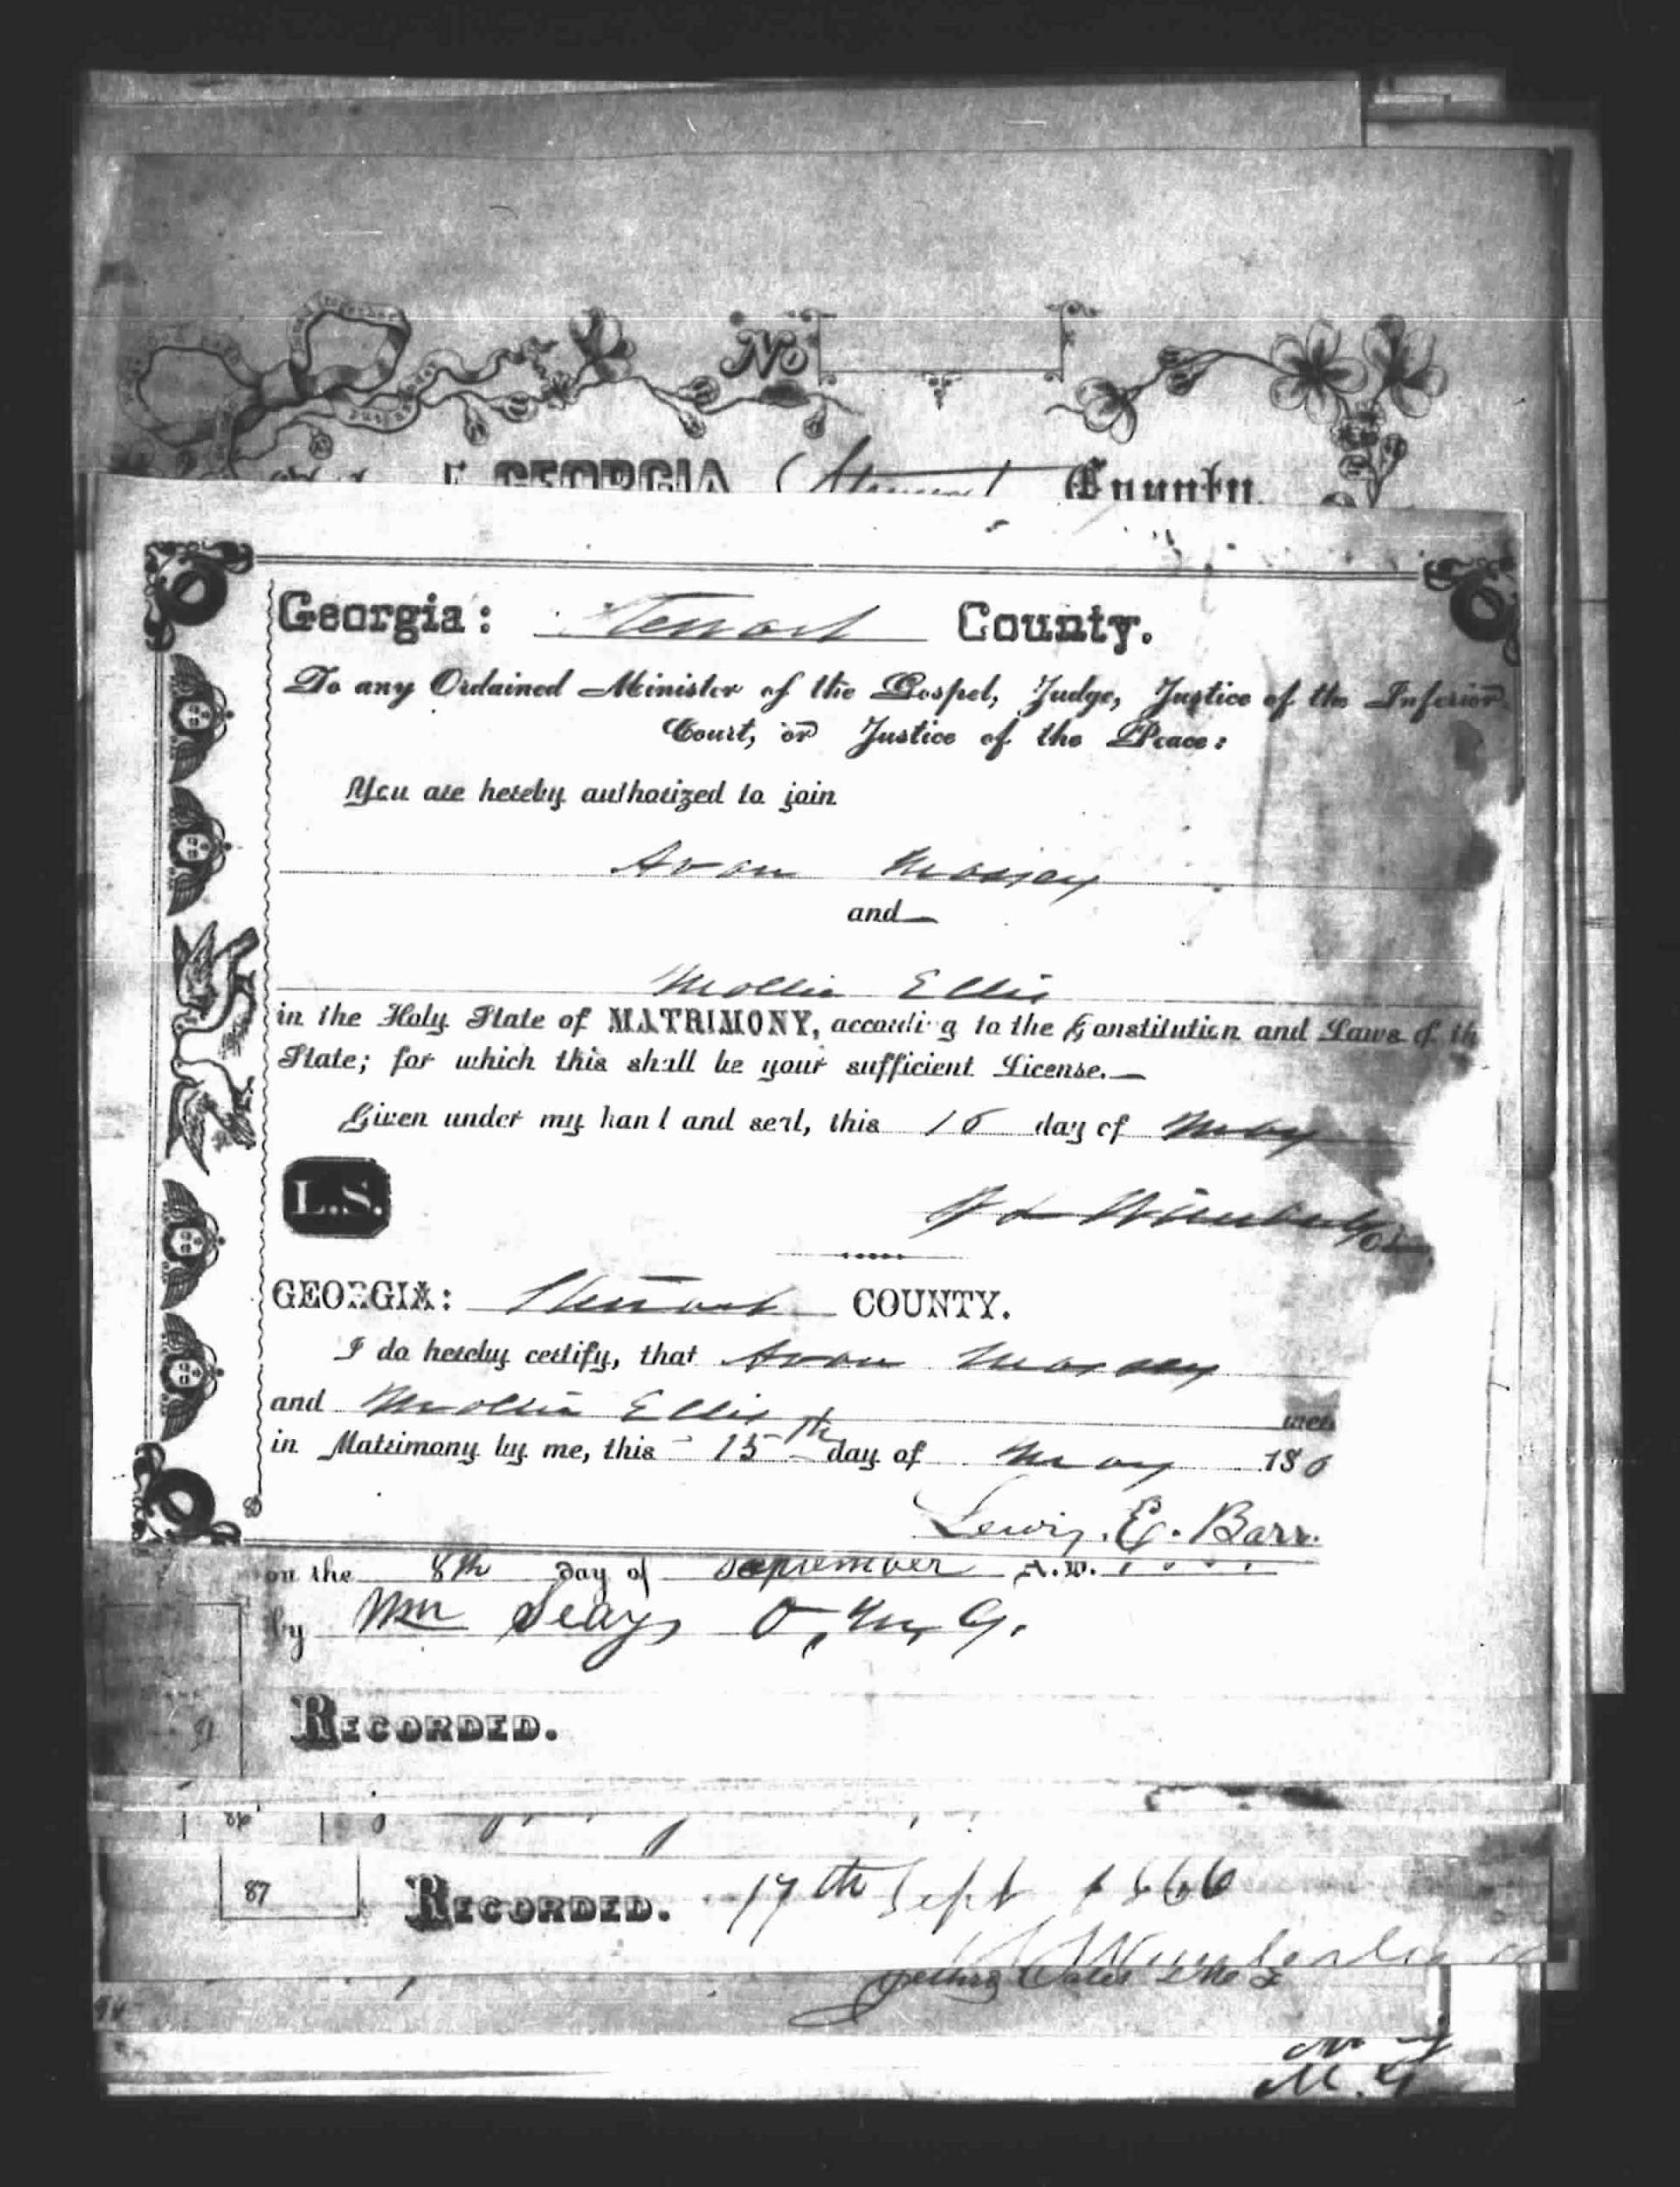 No
GEORGIA, Stewart County
Georgia: Stewart County.
To any Ordained Minister of the Gospel, Judge, Justice of the Inferior
Court, or Justice of the Peace:
You are hereby authorized to join
Avon Massey
and
Mollie Ellis
in the Holy State of MATRIMONY, according to the Constitution and Laws of th
State; for which this shall be your sufficient License.
Given under my hand and seal, this 15 day of May
L.S.
GEORGIA: Stewart COUNTY.
I do hereby certify, that Avon Massey
and Mollie Ellis were
in Matrimony by me, this 15th day of May 186
Lewis. E. Barr.
on the 8th day of September A.D.
by Wm Seays O. M. G.
RECORDED.
86
87
RECORDED. 17th Sept 1866
M. G.